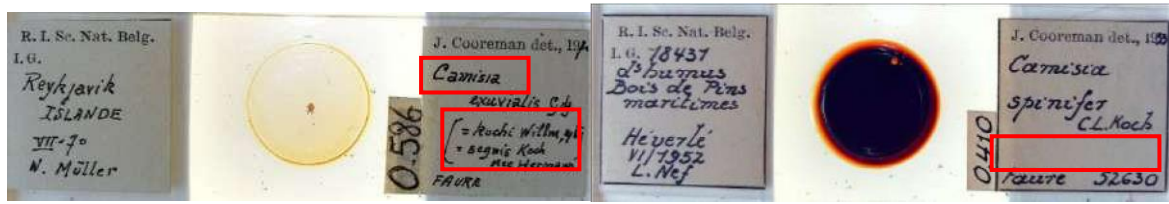 R. I. Sc. Nat. Belg.
I. G.
Reykjavik
ISLANDE
VII-70
N. Müller
0.586
J. Cooreman det., 19
Camisia
exuvialis Gdj
= Kochi Willm,
= segnis Koch
nec Hermann
FAURE
R. I. Sc. Nat. Belg.
I. G. 18437
ds humus
Bois de Pins
maritimes
Héverlé
VI/1952
L. Nef
0.410
J. Cooreman det., 1953
Camisia
spinifer
C.L. Koch
Faure 52630